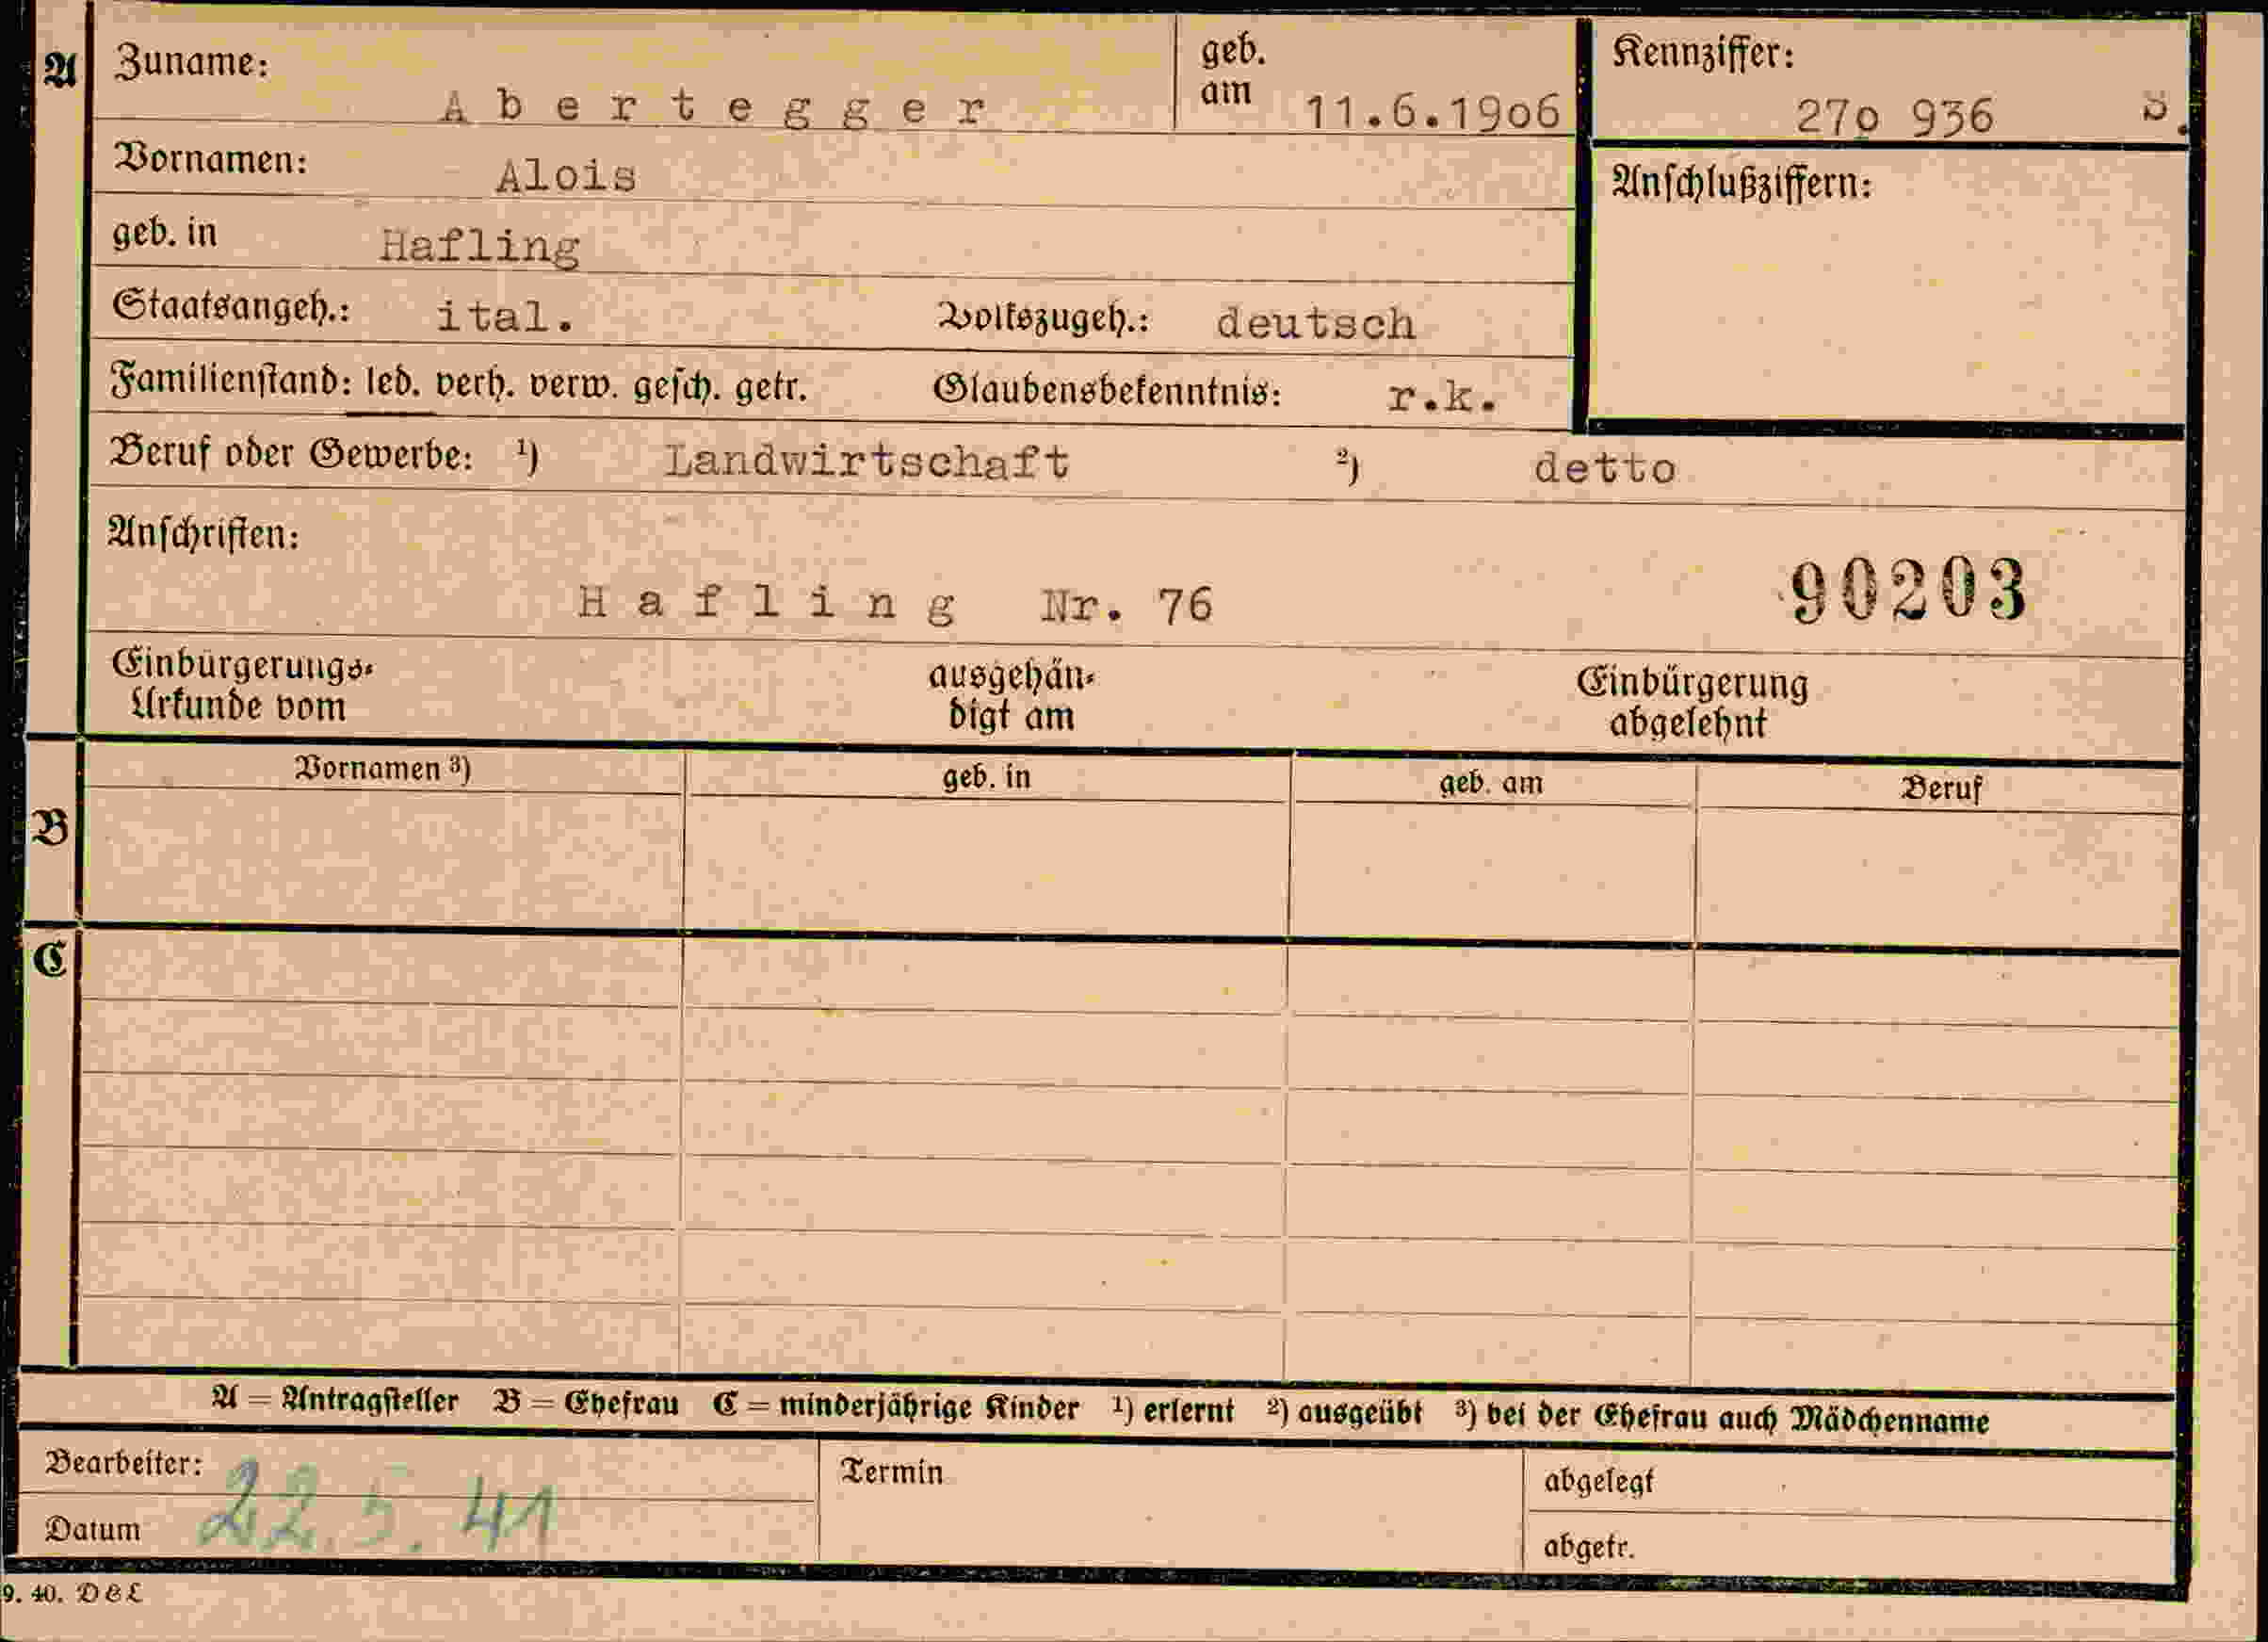 A Zuname: Abertegger geb. am 11.6.1906 Kennziffer: 270 936
Vornamen: Alois Anschlußziffern:
geb. in Hafling
Staatsangeh.: ital. Volkszugeh.: deutsch
Familienstand: led. verh. verw. gesch. getr. Glaubensbekenntnis: r.k.
Beruf oder Gewerbe: 1) Landwirtschaft 2) detto
Anschriften:
Hafling Nr. 76 90203
Einbürgerungs-
Urkunde vom
ausgehän-
digt am
Einbürgerung
abgelehnt
B Vornamen 3) geb. in geb. am Beruf
C
A = Antragsteller B = Ehefrau C = minderjährige Kinder 1) erlernt 2) ausgeübt 3) bei der Ehefrau auch Mädchenname
Bearbeiter: Termin abgelegt
Datum 22. 5. 41 abgetr.
9. 40. DBL